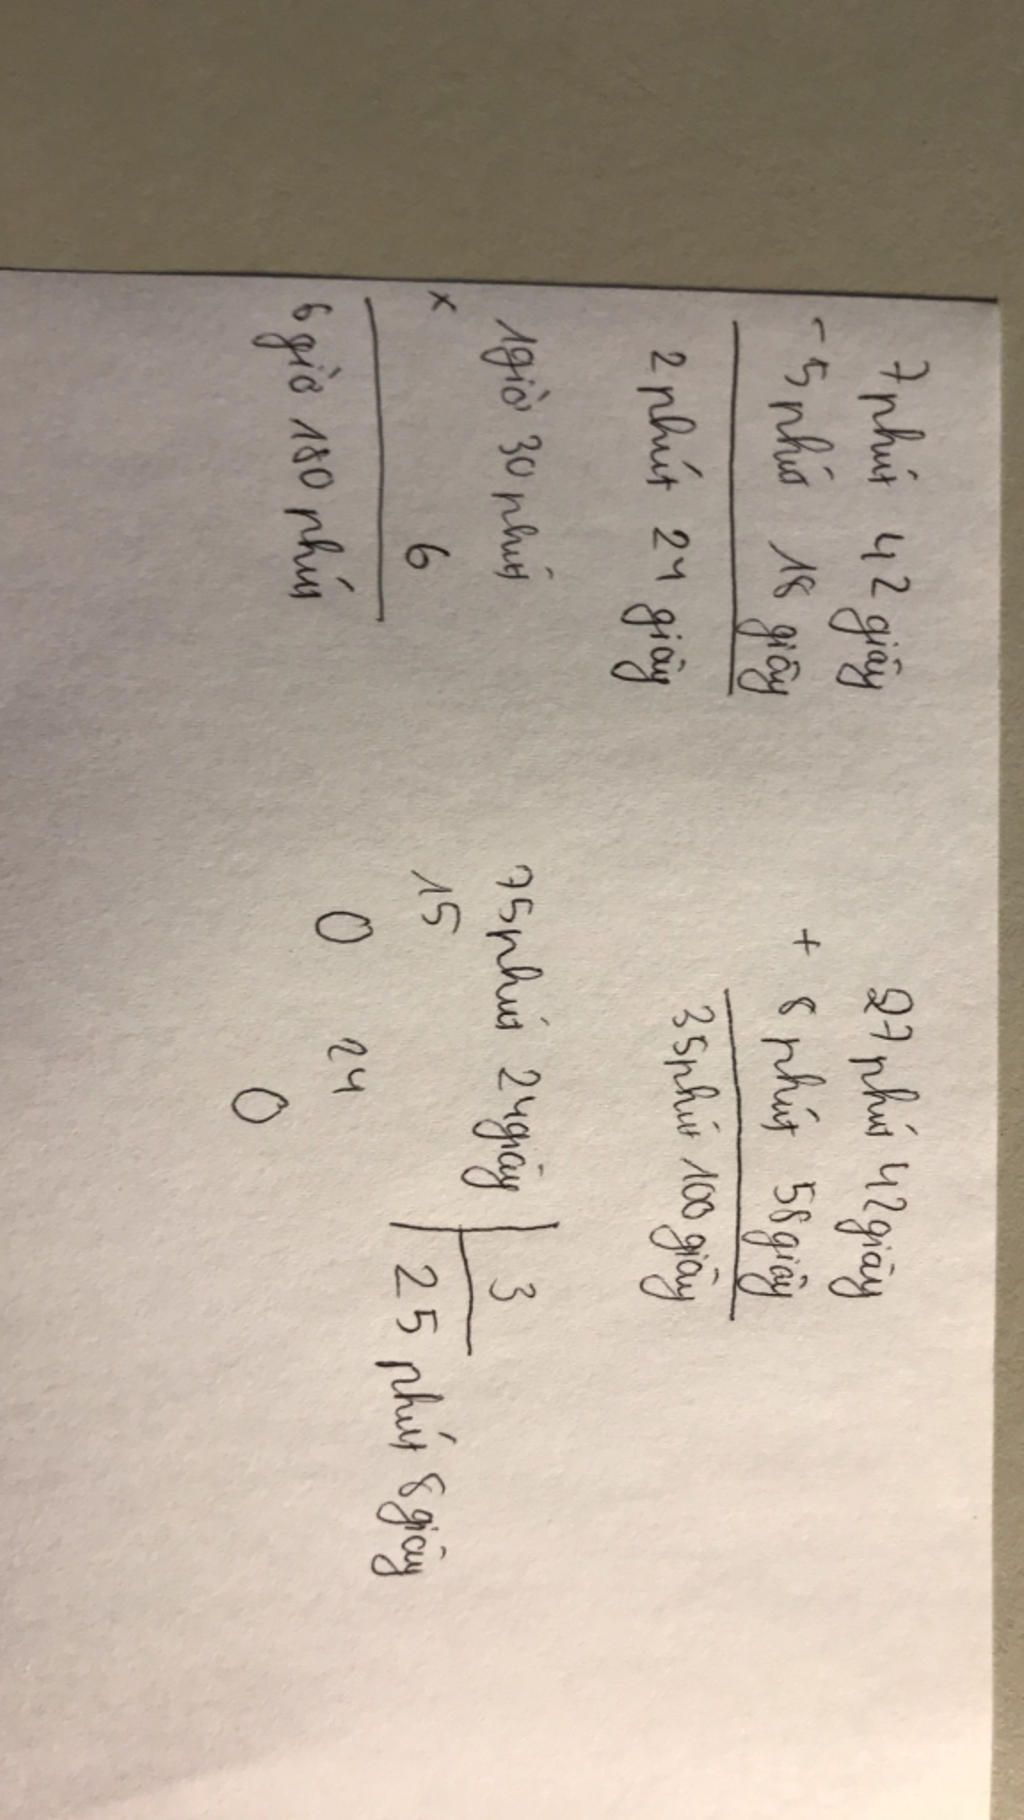 7 phút 42 giây
- 5 phút 18 giây
2 phút 24 giây
27 phút 42 giây
+ 8 phút 58 giây
35 phút 100 giây
1 giờ 30 phút
x 6
6 giờ 180 phút
75 phút 24 giây 3
15 25 phút 8 giây
0 24
0